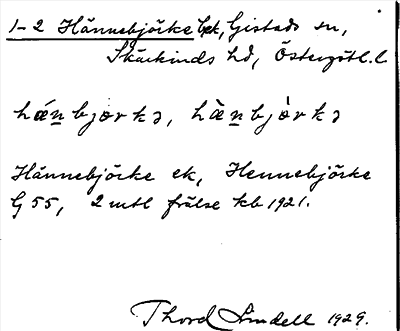 1-2 Hännebjörke bek, Gistads sn,
Skärkinds hd, Östergötl. l.
hǽn bjørkə, hæ̀nbjø̀rkə
Hännebjörke ek, Hennebjörke
G 55, 2 mtl frälse kb 1921.
Thord Lindell 1929.